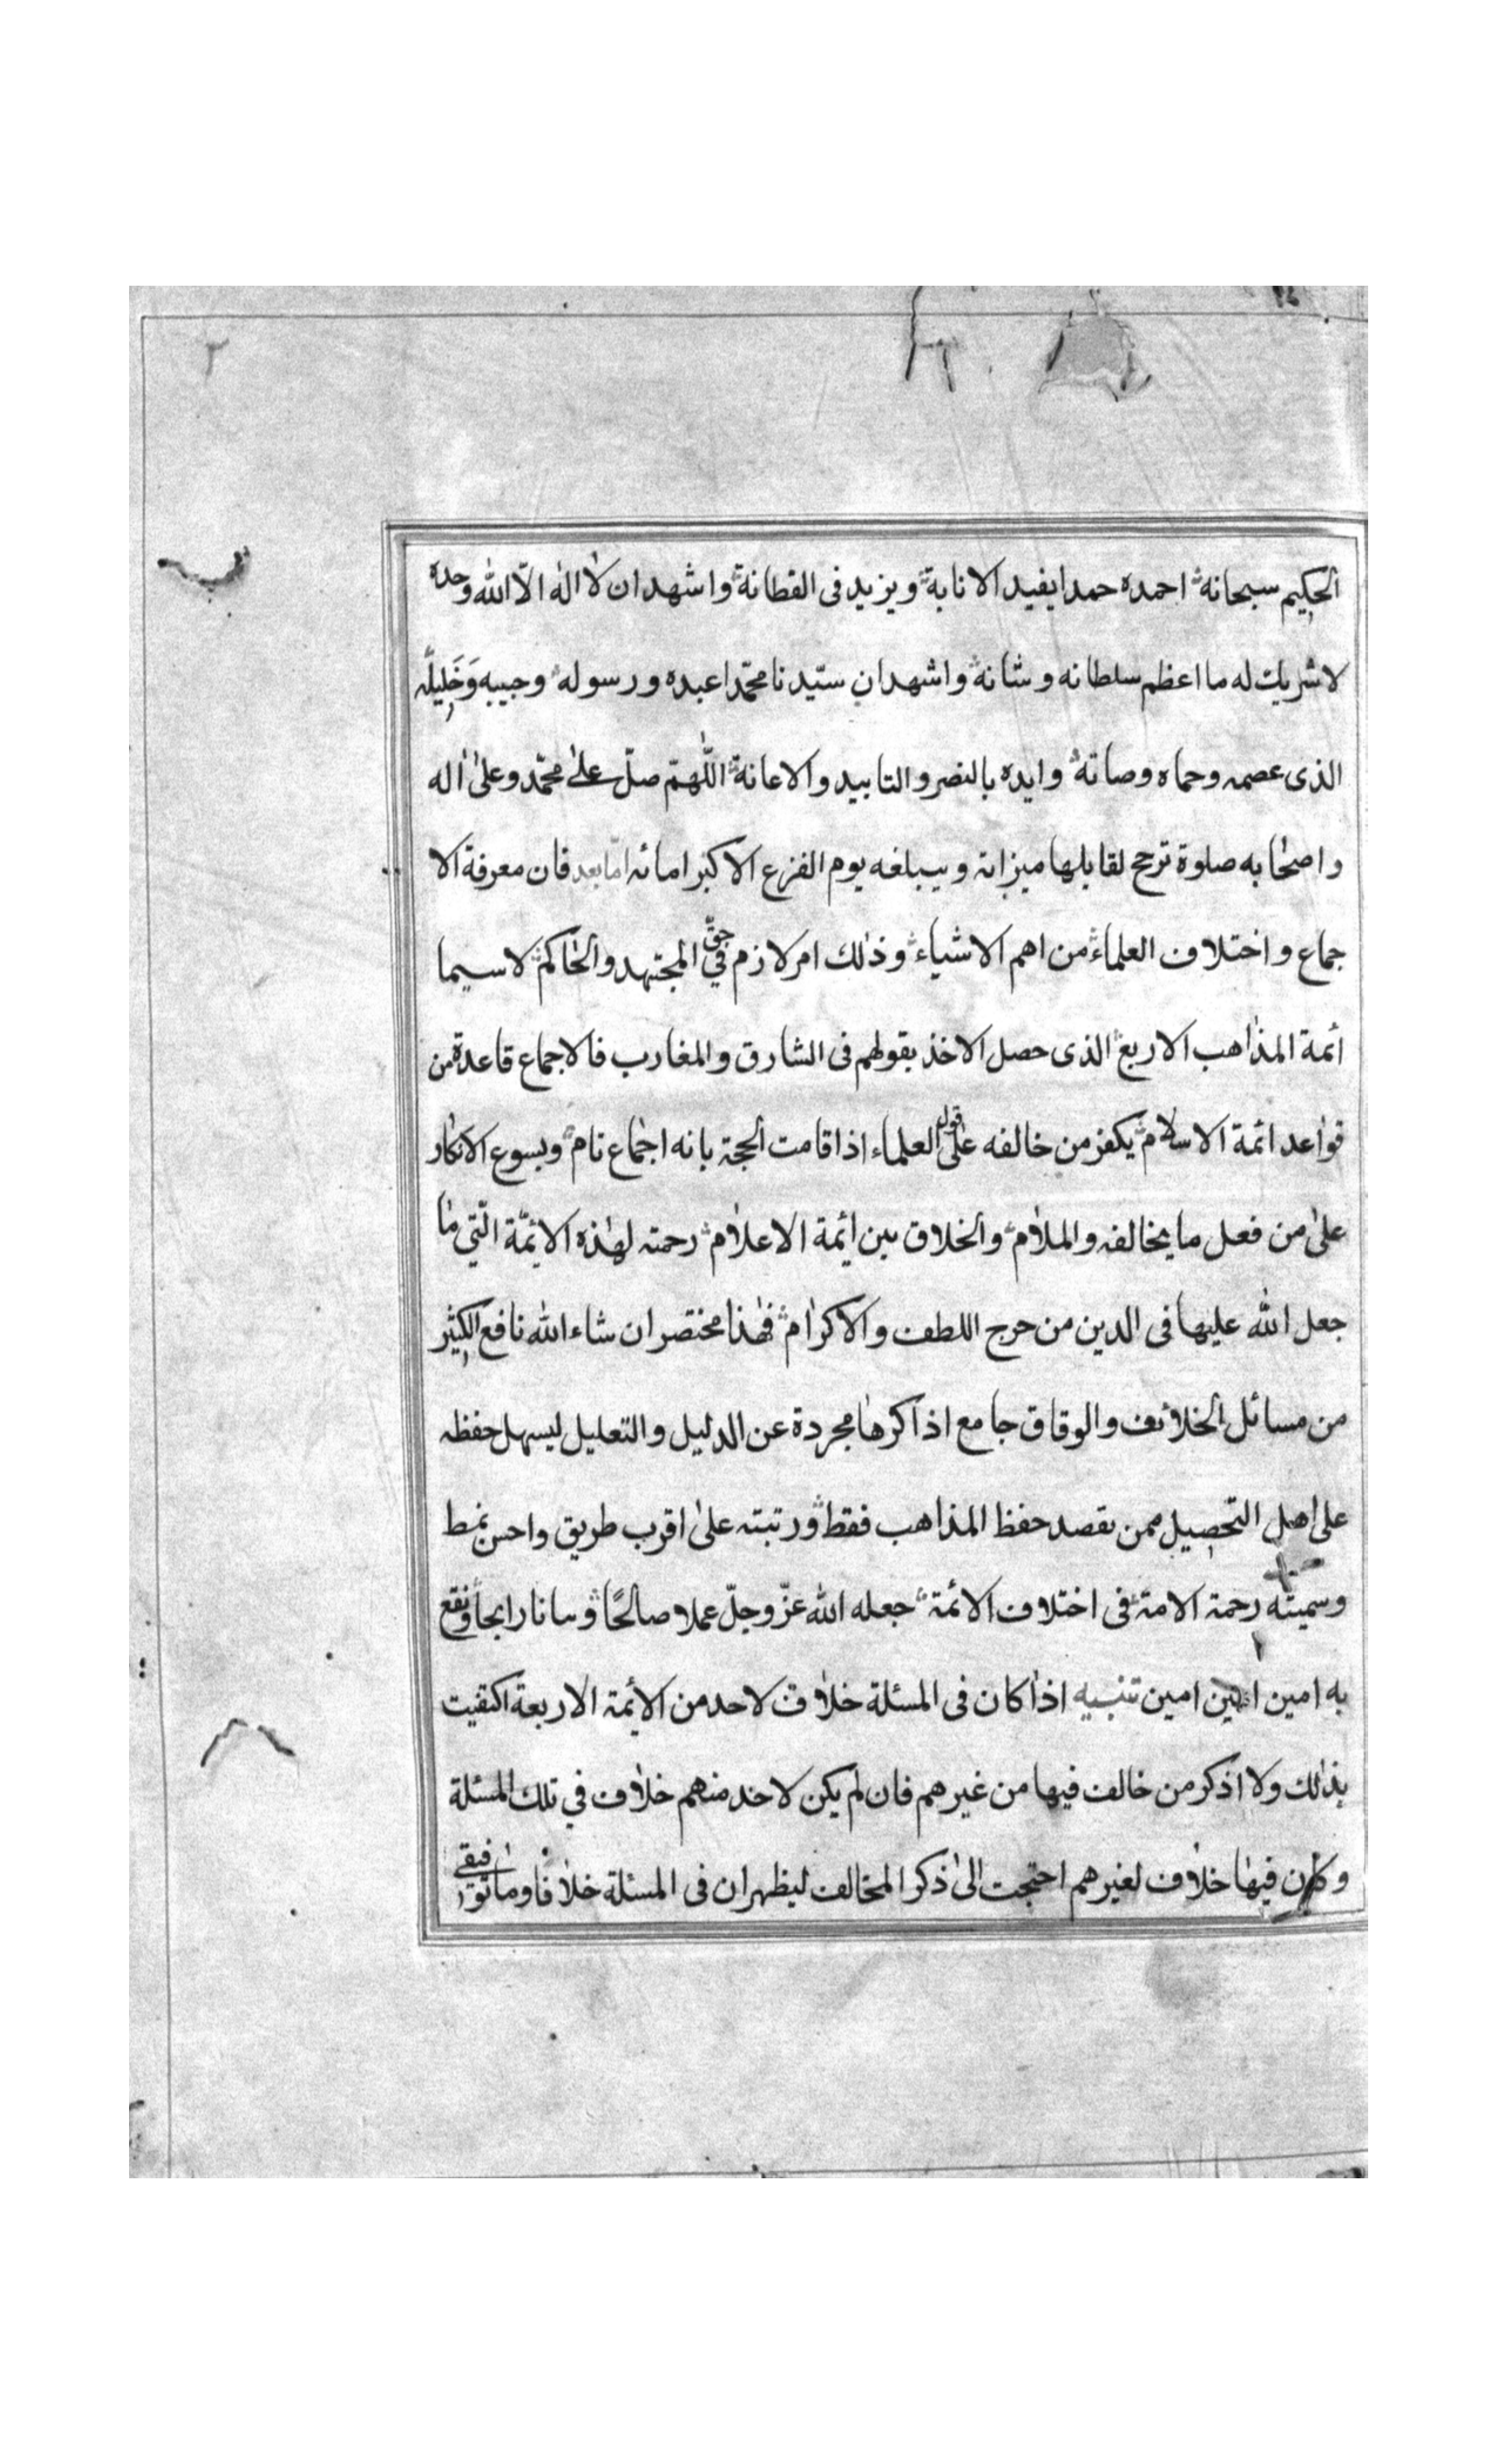 الحكيم سبحانة احمده حمدا يفيد الانابة ويزيد فى القطانة واشهد ان لا اله الّا الله وحده
لا شريك له ما اعظم سلطانه وشانة واشهد ان سيّدنا محمّدا عبده ورسوله وحبيبه وَخَلِيلُه
الذى عصمه وحماه وصانة وايده بالنصر والتاييد والاعانة اللّٰهمّ صلّ على محمّد وعلىٰ اله
واصحٰابه صلوة ترجح لقايلها ميزانه ويبلغه يوم الفزع الاكبر امانه امّا بعد فان معرفة الا
جماع واختلاف العلماء من اهم الاشياء وذٰلك امر لازم في حقّ المجتهد والحٰاكم لا سيما
أئمة المذٰاهب الاربع الذى حصل الاخذ بقولهم فى الشارق والمغارب فالاجماع قاعدة من
قوٰاعد ائمة الاسلام يكفر من خالفه علىٰ قول العلماء اذا قامت الحجة بانه اجمٰاع تام ويسوع الانكار
علىٰ من فعل ما يخالفه والملاٰم والخلاق بين أئمة الاعلاٰم رحمته لهٰذه الائمّة الّتي مٰا
جعل الله عليها فى الدين من حرج اللطف والاكرٰام فهٰذا مختصر ان شاء الله نافع الكثير
من مسائل الخلائف والوقاق جامع اذ اكرهٰا مجردة عن الدليل والتعليل ليسهل حفظه
على اهل التحصيل ممن يقصد حفظ المذاهب فقط ورتبته علىٰ اقرب طريق واحسن نمط
وسميته رحمة الامة فى اختلاف الائمة جعله الله عزّ وجلّ عملا صالحًا وسانا رابحا ونفع
به امين امين امين تنبيه اذٰا كان فى المسئلة خلاٰف لاحد من الأيمة الاربعة اكتفيت
بذٰلك ولا اذكر من خالف فيها من غيرهم فان لم يكن لاحد منهم خلاٰف في تلك المسئلة
وكان فيهٰا خلاٰف لغيرهم احتجت الىٰ ذكر المخالف ليظهر ان فى المسئلة خلاٰفا ومٰا توفيقى